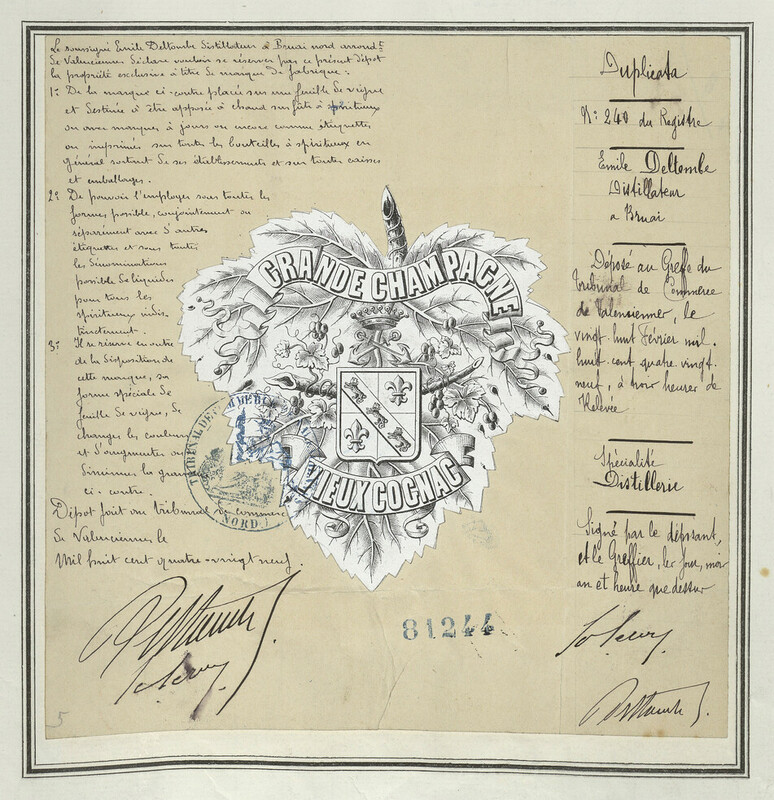 Le soussigné Emile Deltombe Distillateur à Bruai nord arrond.t
De Valenciennes Déclare vouloir se réserver par ce présent Dépot
la propriété exclusive à titre De marque De fabrique :
1º De la marque ci-contre placée sur une feuille De vigne
et Destinée à être apposée à chaud sur fûts à spiritueux
ou avec marques à jours ou encore comme étiquettes
ou imprimés sur toutes les bouteilles à spiritueux en
général sortant De ses établissements et sur toutes caisses
et emballages.
2º De pouvoir l'employer sous toutes les
formes possible, conjointement ou
séparément avec D'autres
étiquettes et sous toutes
les Dénominations
possible De liquides
pour tous les
spiritueux indis-
tinctement.
3º Il se réserve en outre
de la Disposition de
cette marque, sa
forme spéciale De
feuille De vigne, De
changer les couleurs
et D'augmenter ou
Diminuer la grand
ci-contre.
Dépot fait au Tribunal de commerce
De Valenciennes le
Mil huit cent quatre-vingt neuf.
GRANDE CHAMPAGNE
VIEUX COGNAC
TRIBUNAL DE
NORD
81244
5
Duplicata
Nº 240 du Registre
Emile Deltombe
Distillateur
a Bruai
Déposé au Greffe du
Tribunal de Commerce
de Valenciennes, le
vingt huit Février mil
huit cent quatre vingt
neuf, à trois heures de
Relevée
Spécialité
Distillerie
Signé par le déposant,
et le Greffier, les jour, mois
an et heure que dessus